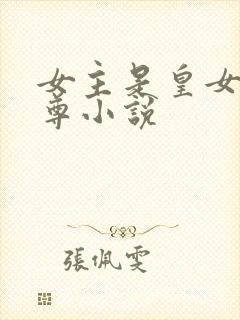 女主是皇女
尊小說
張佩雯